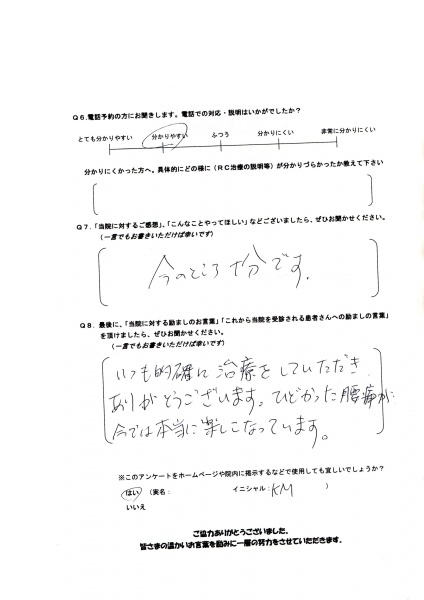 Q6.電話予約の方にお聞きします。電話での対応・説明はいかがでしたか?
とても分かりやすい 分かりやすい ふつう 分かりにくい 非常に分かりにくい
分かりにくかった方へ。具体的にどの様に(RC治療の説明等)が分かりづらかったか教えて下さい
Q7.「当院に対するご感想」、「こんなことやってほしい」などございましたら、ぜひお聞かせください。
(一言でもお書きいただけば幸いです)
今のところ十分です。
Q8.最後に、「当院に対する励ましのお言葉」「これから当院を受診される患者さんへの励ましの言葉」
を頂けましたら、ぜひお聞かせください。
(一言でもお書きいただけば幸いです)
いつも的確に治療をしていただき
ありがとうございます。ひどかった腰痛が
今では本当に楽しこなっています。
※このアンケートをホームページや院内に掲示するなどで使用しても宜しいでしょうか?
はい (実名: イニシャル:KM )
いいえ
ご協力ありがとうございました。
皆さまの温かいお言葉を励みに一層の努力をさせていただきます。